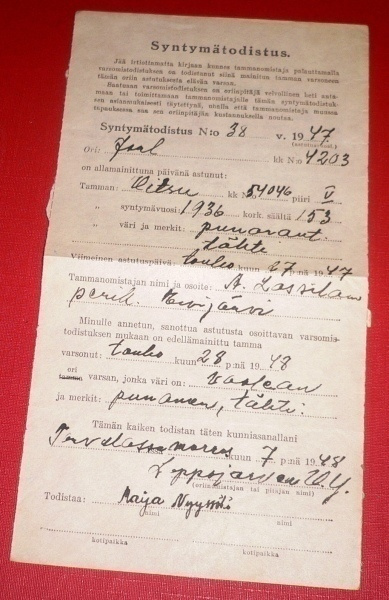 Syntymätodistus.
Jää irtiottamatta kirjaan kunnes tammanomistaja palauttamalla
varsomistodistuksen on todistanut siinä mainitun tamman varsoneen
tämän oriin astutuksesta elävän varsan.
Saatuaan varsomistodistuksen on oriinpitäjä velvollinen heti anta-
maan tai toimittamaan tammanomistajalle tämän syntymätodistuk-
sen asianmukaisesti täytettynä, uhalla että tammanomistaja muussa
tapauksessa saa sen oriinpitäjän kustannuksella noutaa.
Syntymätodistus N:o 38 v. 1947
(astutusvuosi)
Ori: Joal kk N:o 4203
on allamainittuna päivänä astunut:
Tamman: kk 54046 piiri V
„ syntymävuosi 1936 kork. säältä 153
„ väri ja merkit: punaraut.
tähti
Viimeinen astutuspäivä touko kuun 27 p:nä 1947
Tammanomistajan nimi ja osoite: A. Lassilan
perik. Kivijärvi
Minulle annetun, sanottua astutusta osoittavan varsomis-
todistuksen mukaan on edellämainittu tamma
varsonut: touko kuun 28 p:nä 1948
ori
tamma varsan, jonka väri on: vaalean
ja merkit: punanen, tähti
Tämän kaiken todistan täten kunniasanallani
kuun 7 p:nä 1948
(oriinomistajan tai pitäjän nimi)
Todistaa: Maija Nyyssölä
(nimi) nimi
kotipaikka kotipaikka